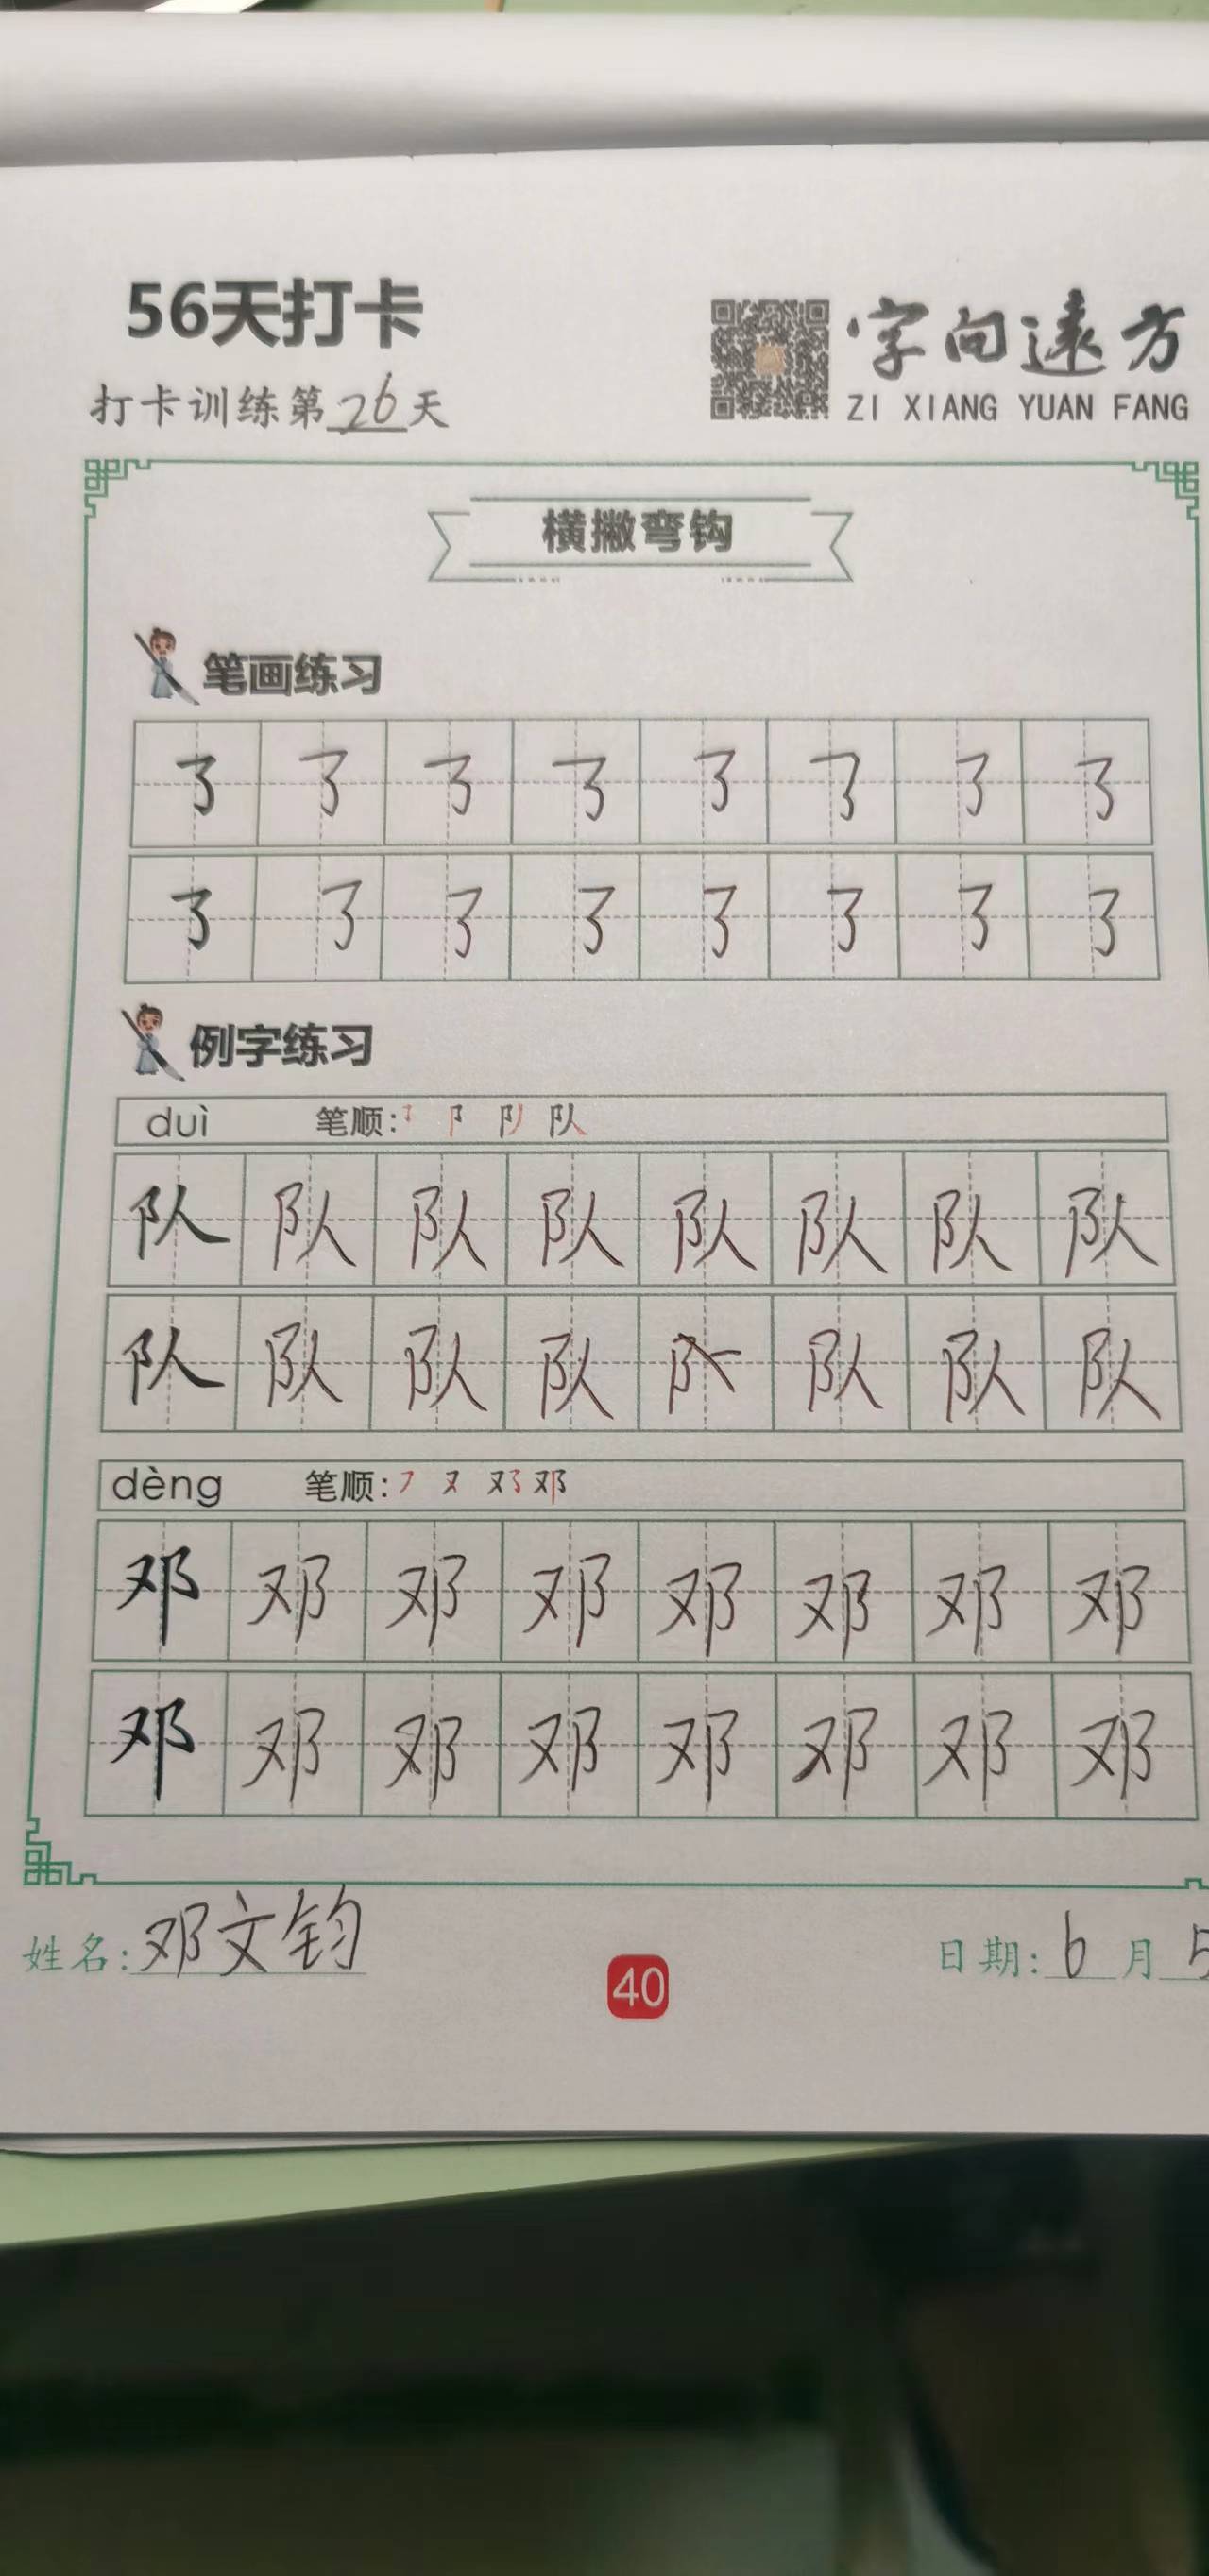 56天打卡
打卡训练第26天
字向遠方
ZI XIANG YUAN FANG
横撇弯钩
笔画练习
㇌ ㇌ ㇌ ㇌ ㇌ ㇌ ㇌ ㇌
㇌ ㇌ ㇌ ㇌ ㇌ ㇌ ㇌ ㇌
例字练习
duì 笔顺: ㇌ 阝 队
队 队 队 队 队 队 队 队
队 队 队 队 队 队 队
dèng 笔顺: ㇇ 又 邓
邓 邓 邓 邓 邓 邓 邓 邓
邓 邓 邓 邓 邓 邓 邓 邓
姓名:邓文钧
40
日期:6月5